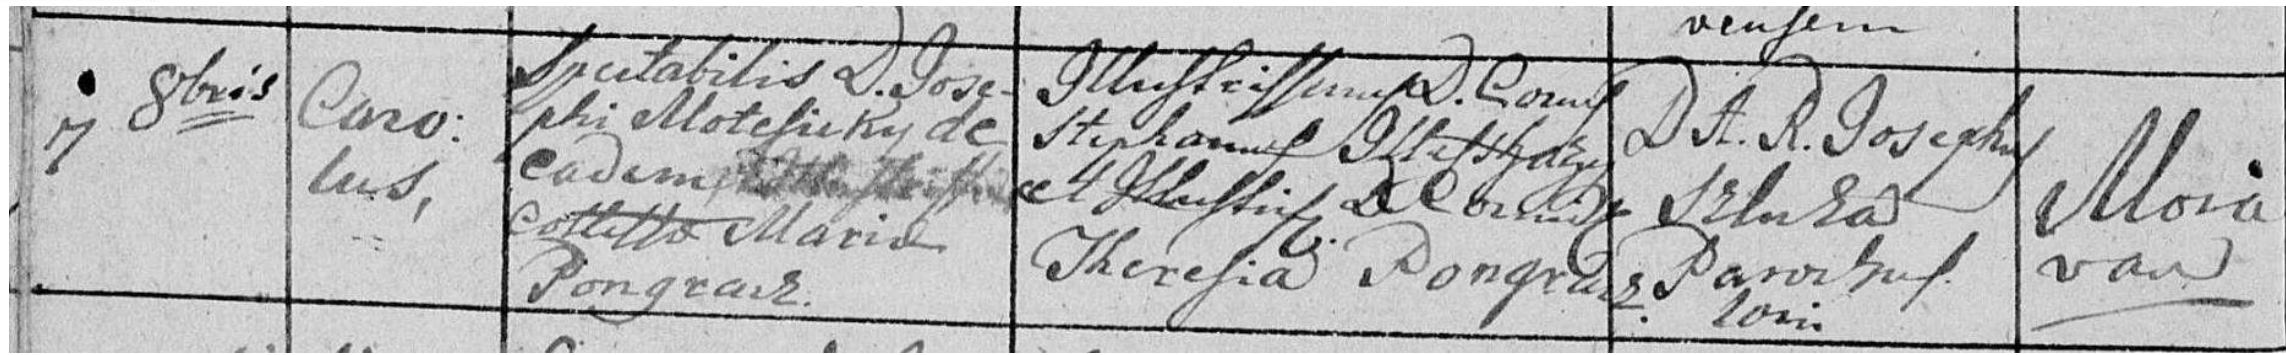 vensem
7 8bris
Caro:
lus,
Spectabilis D. Jose-
phi Motesiczky de
eadem
Maria
Pongracz.
Illustrissimus D. Comes
Stephanus Illésházy
et Illustris. D. Comit.
Theresia Pongracz.
D A. R. Josephus
Szluka
Parochus
loci
Mora
van